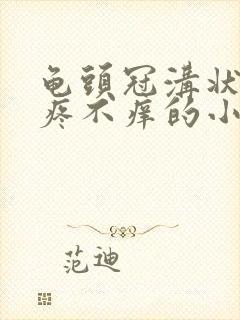 龟頭冠溝状
疼不痒的小
范迪